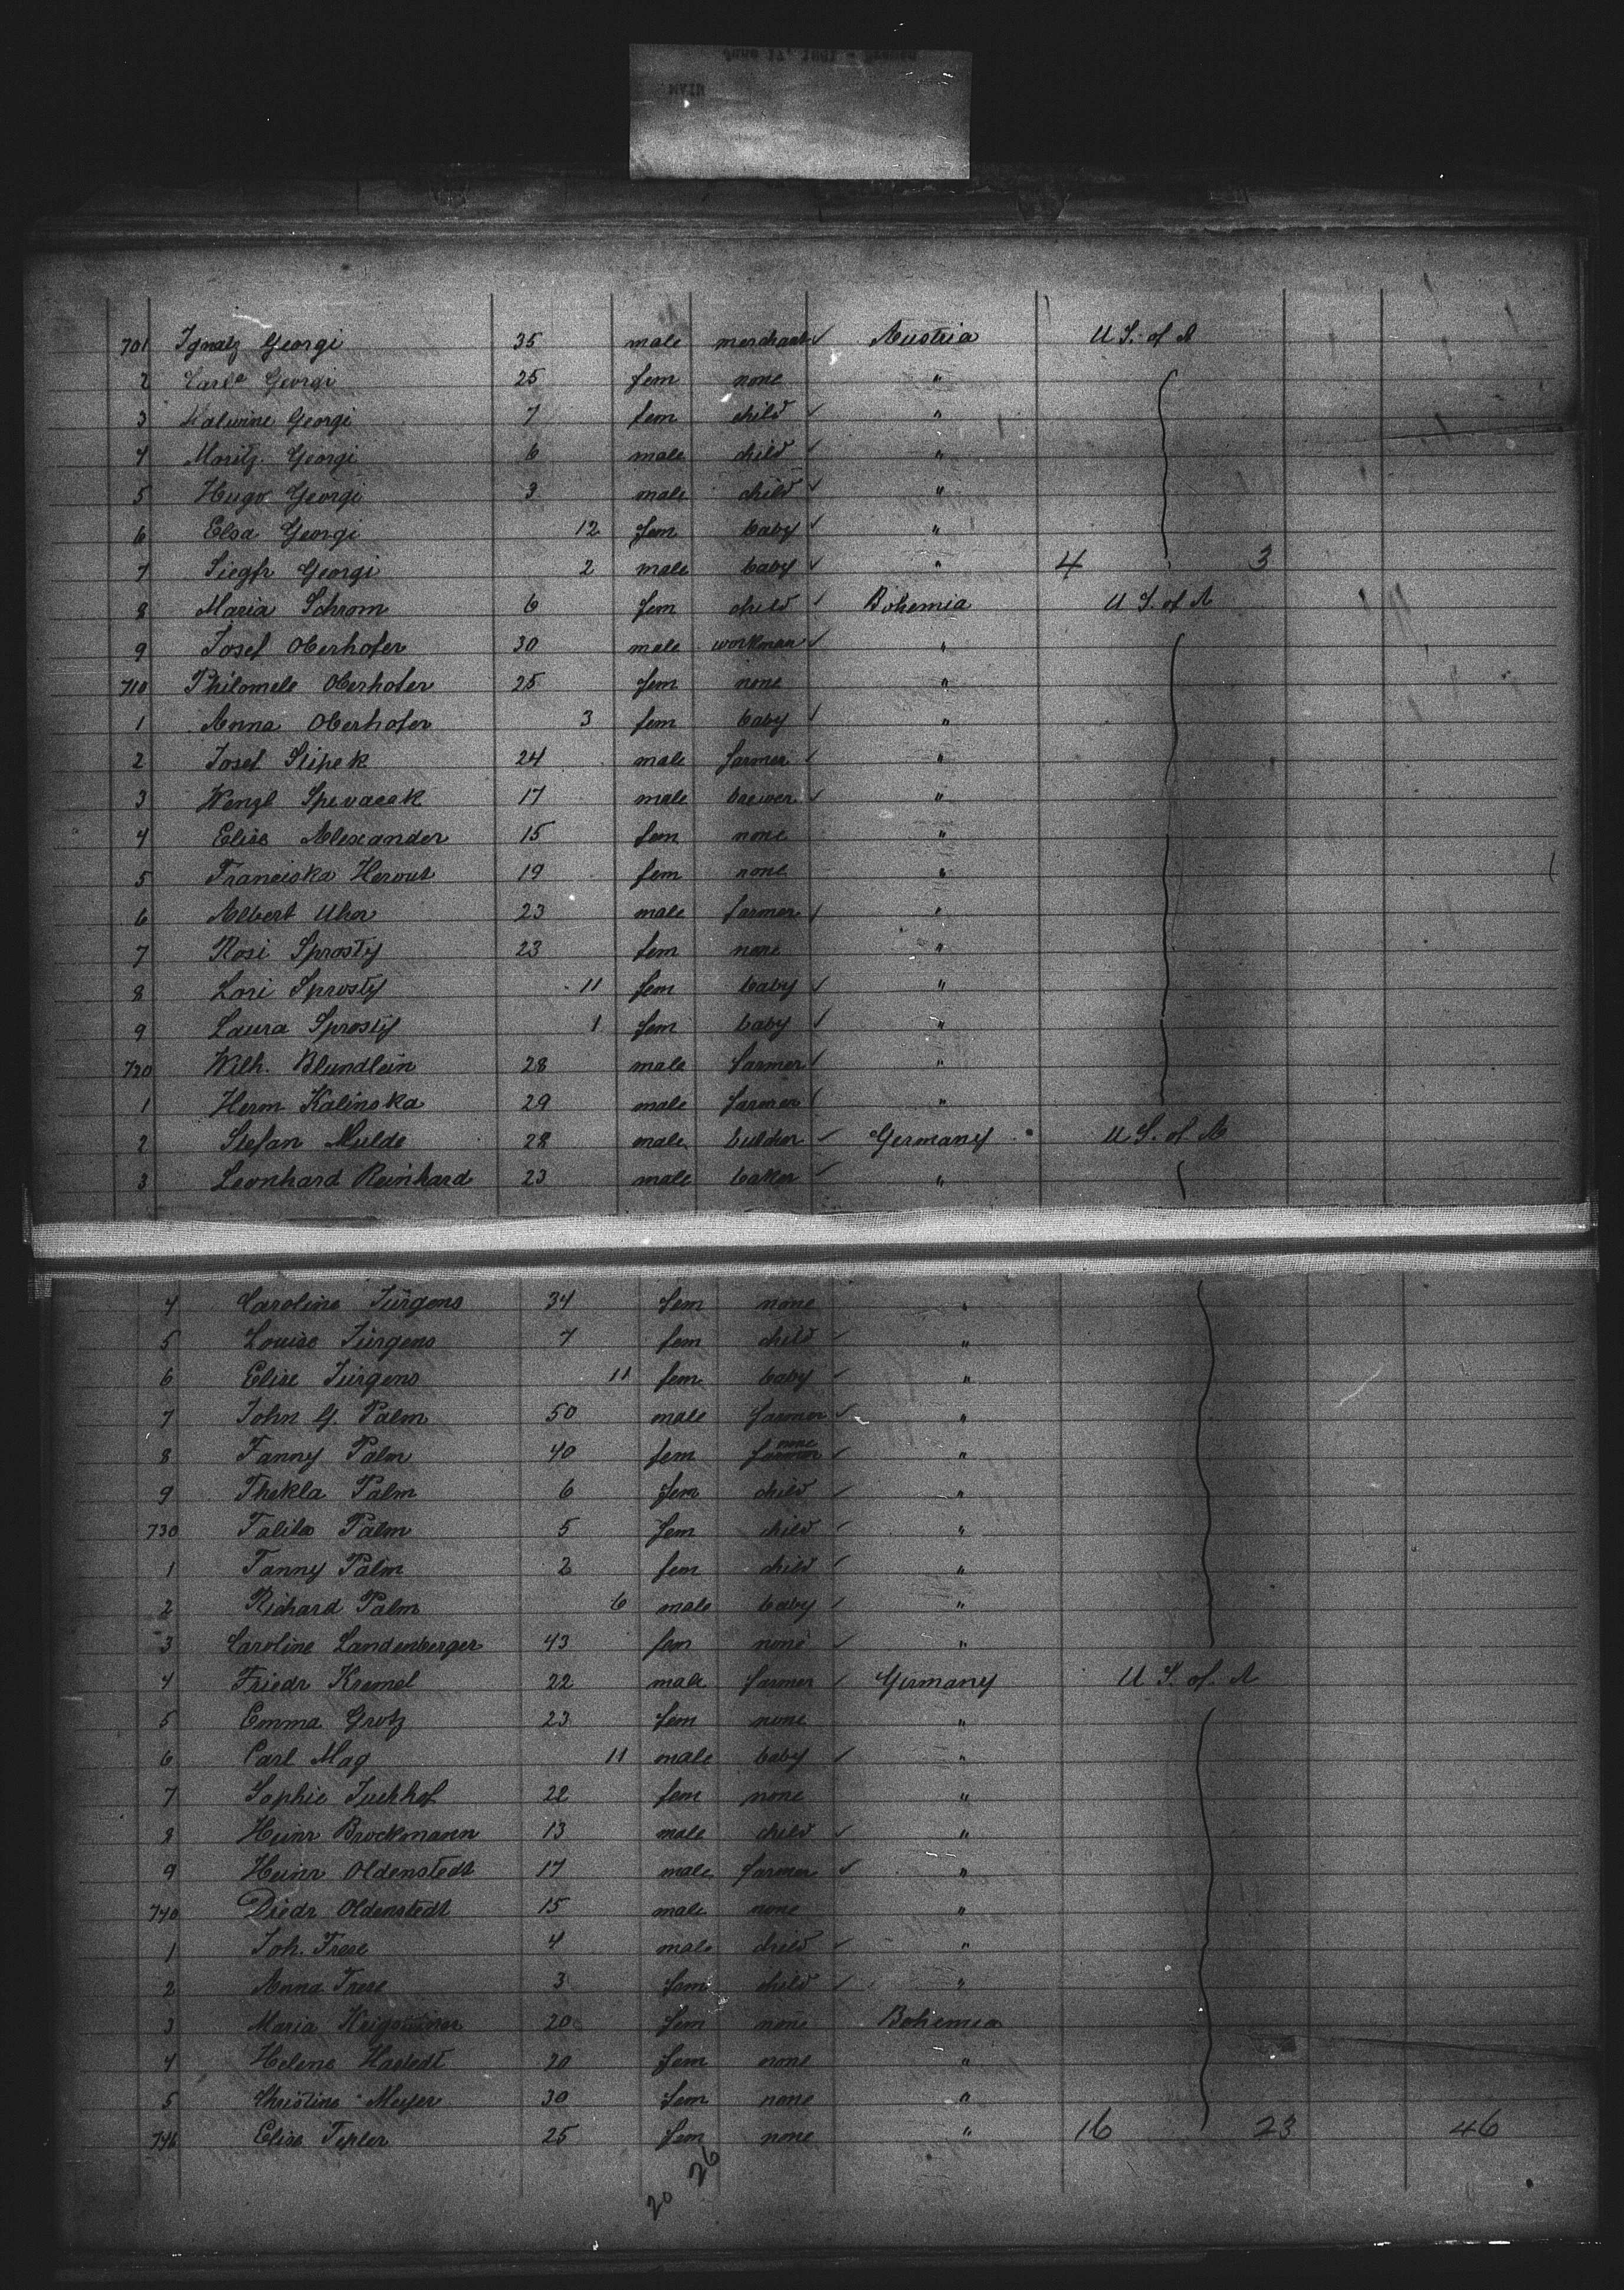 701 Ignatz Georgi 35 male merchant ✓ Austria U S. of A
2 Georgi 25 fem none "
3 Malwine Georgi 7 fem child ✓ "
4 Moritz Georgi 6 male child ✓ "
5 Hugo Georgi 3 male child ✓ "
6 Elsa Georgi 12 fem baby ✓ "
7 Siegfr Georgi 2 male baby ✓ " 4 3
8 Maria Schrom 6 fem child ✓ Bohemia U S. of A
9 Josef Oberhofer 30 male workman ✓ "
710 Philomele Oberhofer 25 fem none "
1 Anna Oberhofer 3 fem baby ✓ "
2 Josef Sipek 24 male farmer ✓ "
3 Wenzl Spevacek 17 male brewer ✓ "
4 Elise Alexander 15 fem none "
5 Franciska Herout 19 fem none "
6 Albert Uher 23 male farmer ✓ "
7 Rosi Sprosty 23 fem none "
8 Lori Sprosty 11 fem baby ✓ "
9 Laura Sprosty 1 fem baby ✓ "
720 Wilh. Blundlein 28 male farmer ✓ "
1 Herm Kalinska 29 male farmer ✓ "
2 Stefan Mulde 28 male ✓ Germany U S. of A
3 Leonhard Reinhard 23 male baker ✓ "
4 Caroline Jürgens 34 fem none "
5 Louise Jürgens 7 fem child ✓ "
6 Elise Jürgens 11 fem baby ✓ "
7 John G. Palm 50 male farmer ✓ "
8 Fanny Palm 40 fem farmer none ✓ "
9 Thekla Palm 6 fem child ✓ "
730 Palm 5 fem child ✓ "
1 Fanny Palm 2 fem child ✓ "
2 Richard Palm 6 male baby ✓ "
3 Caroline Landenberger 43 fem none ✓ "
4 Friedr Kremel 22 male farmer ✓ Germany U S. of A
5 Emma Grotz 23 fem none "
6 Carl Mag 11 male baby ✓ "
7 Sophie 22 fem none "
8 Heinr Brockmann 13 male child ✓ "
9 Heinr Oldenstedt 17 male farmer ✓ "
740 Diedr Oldenstedt 15 male none "
1 Joh. Frese 4 male child ✓ "
2 Anna Frese 3 fem child ✓ "
3 Maria 20 fem none Bohemia
4 Helene Hastedt 20 fem none "
5 Christine Meyer 30 fem none "
746 Elise Tepler 25 fem none " 16 23 46
20 26